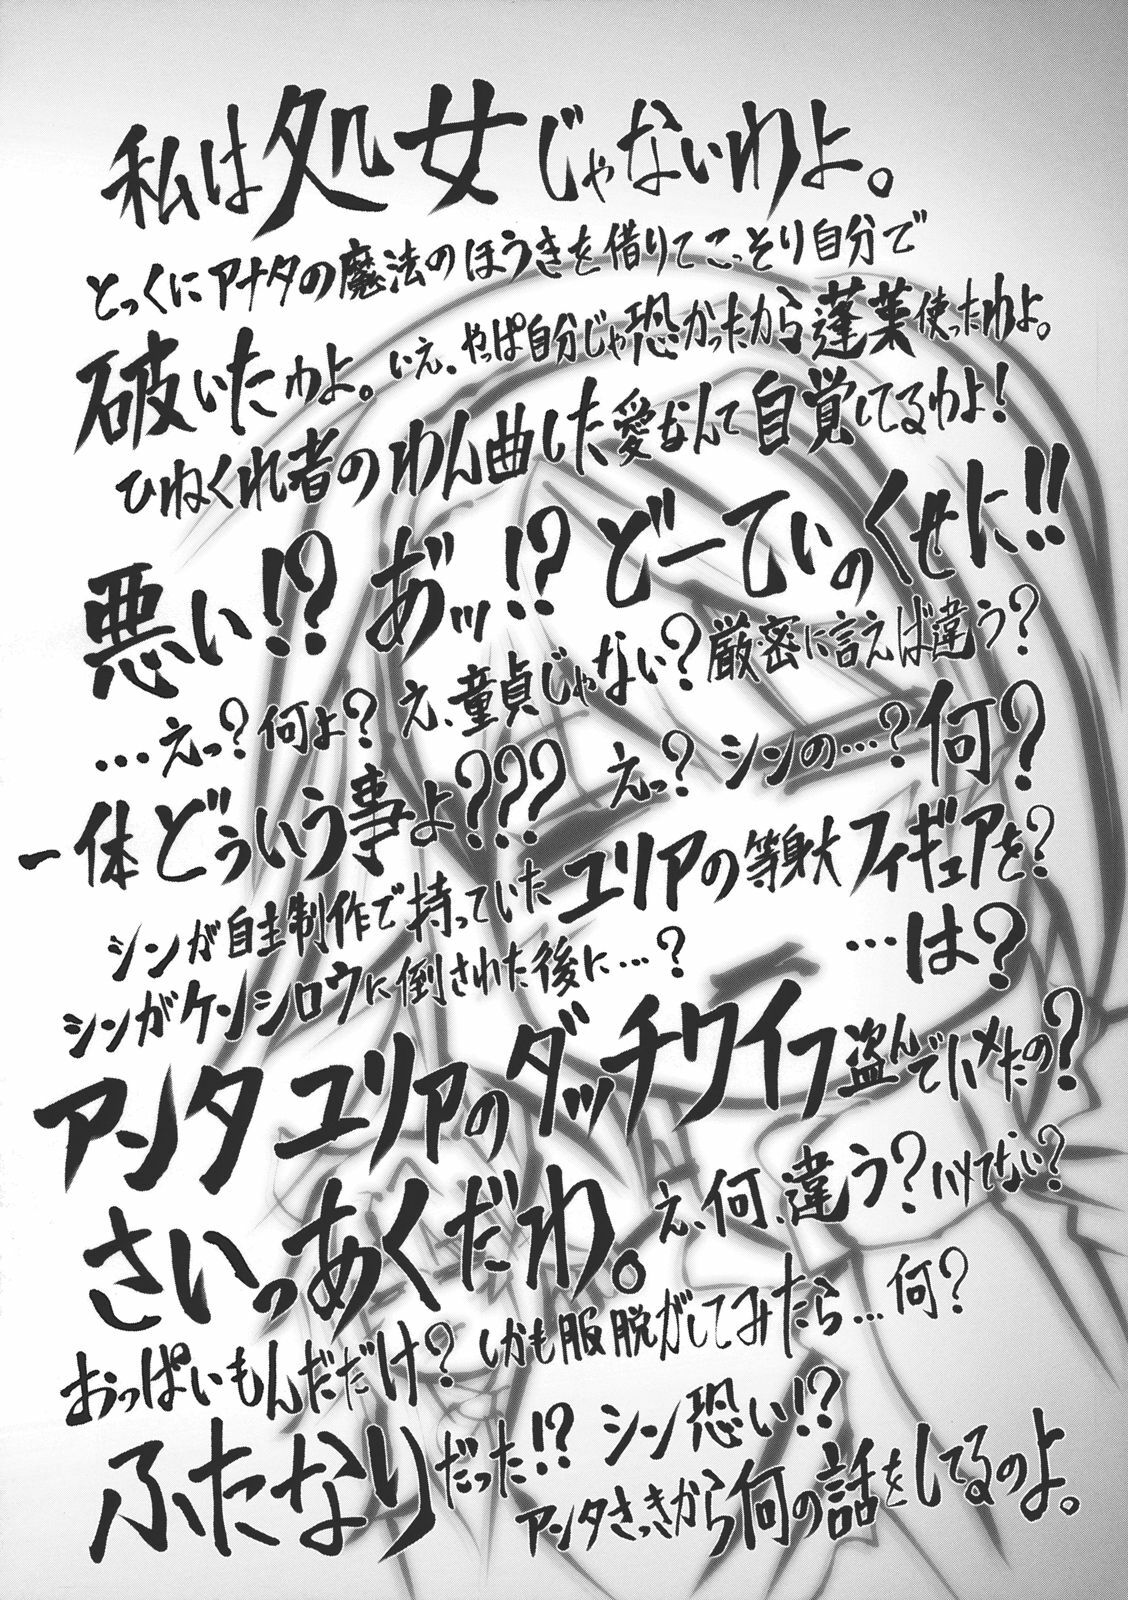 私は処女じゃないわよ。
とっくにアナタの魔法のほうきを借りてこっそり自分で
破いたわよ。いえ、やっぱ自分じゃ恐かったから蓬莱使ったわよ。
ひねくれ者のわん曲した愛なんて自覚してるわよ!
悪い!? あ゛ッ!? どーてぃのくせに!!
…えっ?何よ? え、童貞じゃない?厳密に言えば違う?
一体どういう事よ??? えっ? シンの…?何?
シンが自主制作で持っていたユリアの等身大フィギュアを?
シンがケンシロウに倒された後に…? …は?
アンタユリアのダッチワイフ盗んでハメたの?
さいっあくだわ。え、何、違う?ハメてない?
おっぱいもんだだけ?しかも服脱がしてみたら…何?
ふたなりだった!? シン恐い!?
アンタさっきから何の話をしてるのよ。